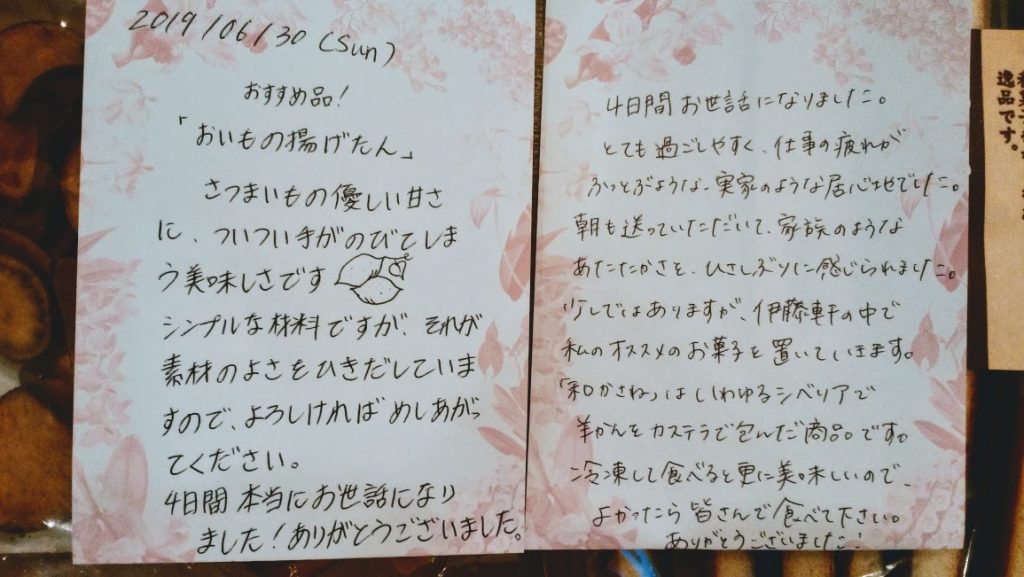 2019/06/30(Sun)
おすすめ品!
「おいもの揚げたん」
さつまいもの優しい甘さ
に、ついつい手がのびてしま
う美味しさです
シンプルな材料ですが、それが
素材のよさをひきだしていま
すので、よろしければめしあがっ
てください。
4日間本当にお世話になり
ました!ありがとうございました。
4日間お世話になりました。
とても過ごしやすく、仕事の疲れが
ふっとぶような、実家のような居心地でした。
朝も送っていただいて、家族のような
あたたかさを、ひさしぶりに感じられました。
少しではありますが、伊藤軒の中で
私のオススメのお菓子を置いていきます。
「和かさね」はいわゆるシベリアで
羊かんをカステラで包んだ商品です。
冷凍して食べると更に美味しいので、
よかったら皆さんで食べて下さい。
ありがとうございました!
逸品です。